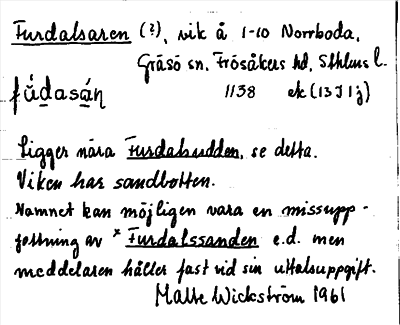 Furdalsaren (?), vik å 1-10 Norrboda,
Gräsö sn, Frösåkers hd, Sthlms l.
fúdasán 1138 ek (13J1j)
Ligger nära Furdalsudden, se detta.
Viken har sandbotten.
Namnet kan möjligen vara en missupp-
fattning av *Furdalssanden e.d. men
meddelaren håller fast vid sin uttalsuppgift.
Matte Wickström 1961